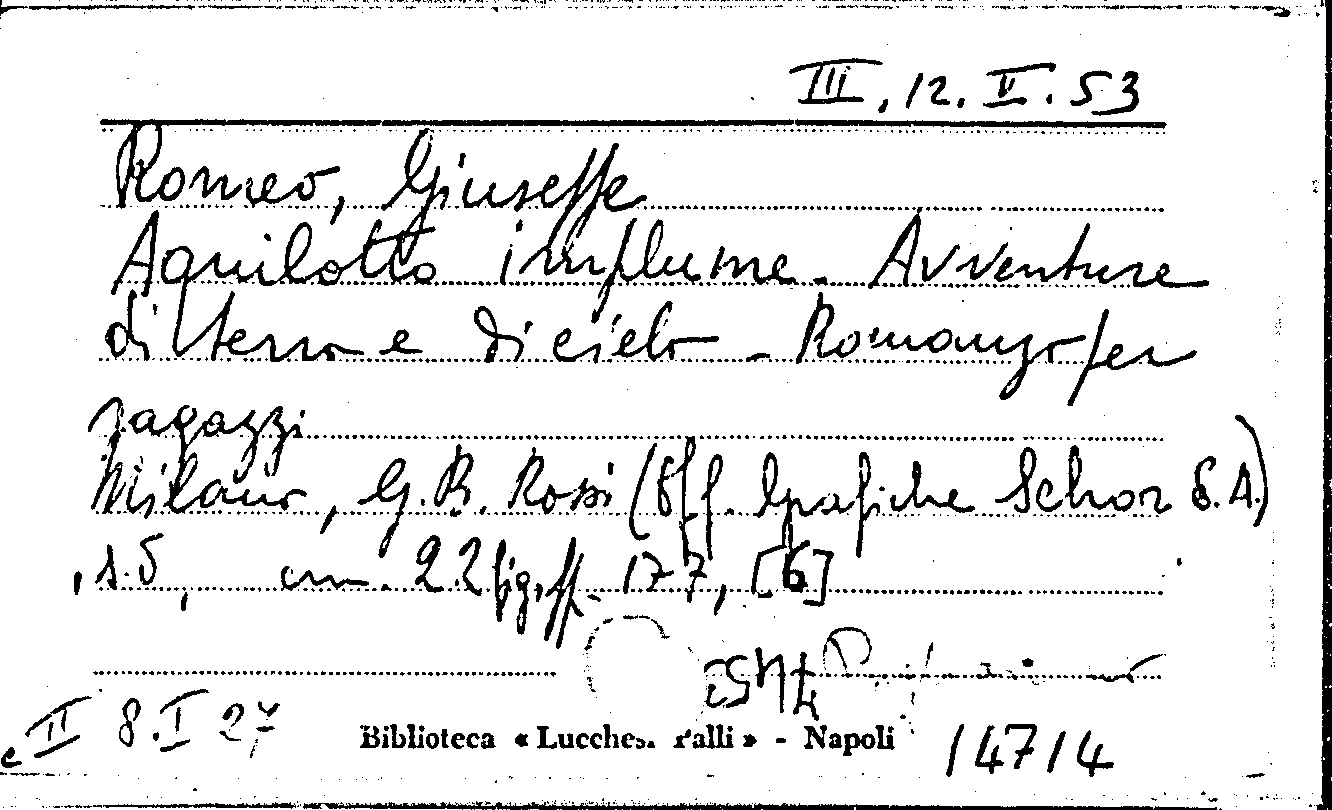 III. 12. II. 53
Romeo, Giuseppe
Aquilotto implume. Avventure
di terra e di cielo - Romanzo per
ragazzi
Milano, G. B. Rossi (Off. Grafiche Schor S. A.)
, s.d, cm. 22 fig, pp. 177, [6]
e II 8. I 27
Biblioteca « Lucches. Palli » - Napoli
14714